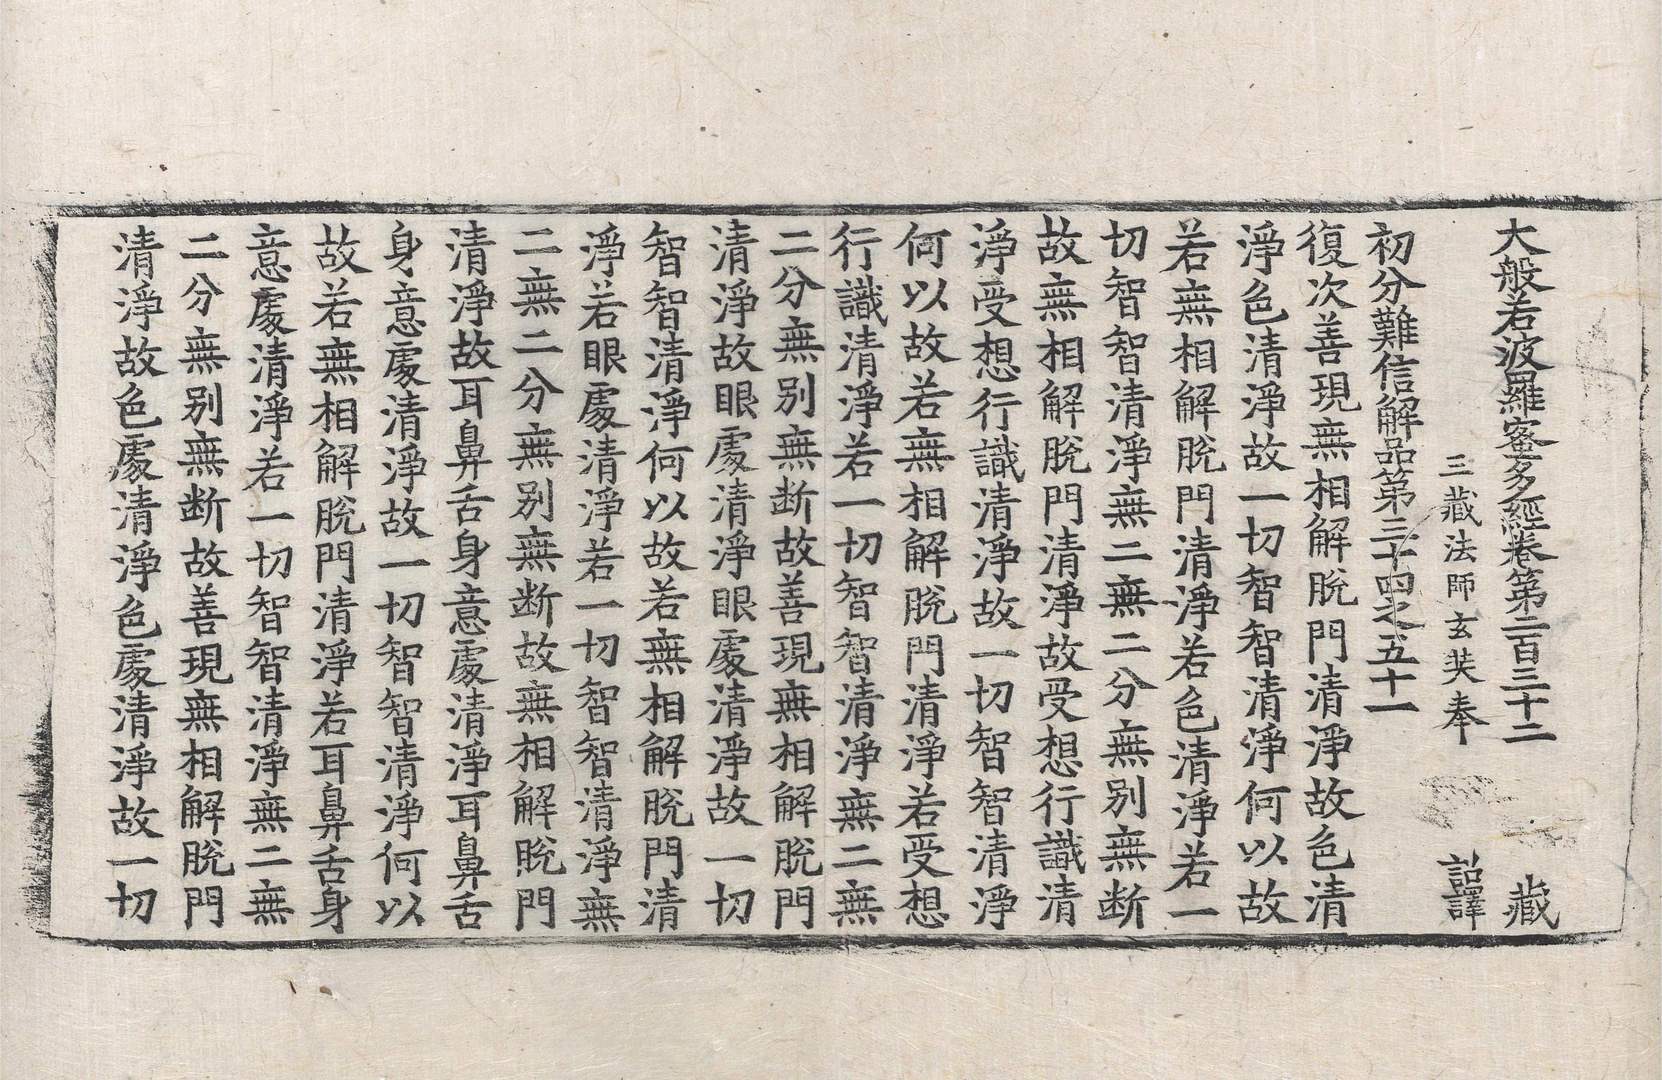 大般若波羅蜜多經卷第二百三十二 藏
三藏法師玄奘奉 詔譯
初分難信解品第三十四之五十一
復次善現無相解脫門清淨故色清
淨色清淨故一切智智清淨何以故
若無相解脫門清淨若色清淨若一
切智智清淨無二無二分無別無斷
故無相解脫門清淨故受想行識清
淨受想行識清淨故一切智智清淨
何以故若無相解脫門清淨若受想
行識清淨若一切智智清淨無二無
二分無別無断故善現無相解脫門
清淨故眼處清淨眼處清淨故一切
智智清淨何以故若無相解脫門清
淨若眼處清淨若一切智智清淨無
二無二分無別無断故無相解脫門
清淨故耳鼻舌身意處清淨耳鼻舌
身意處清淨故一切智智清淨何以
故若無相解脫門清淨若耳鼻舌身
意處清淨若一切智智清淨無二無
二分無別無断故善現無相解脫門
清淨故色處清淨色處清淨故一切